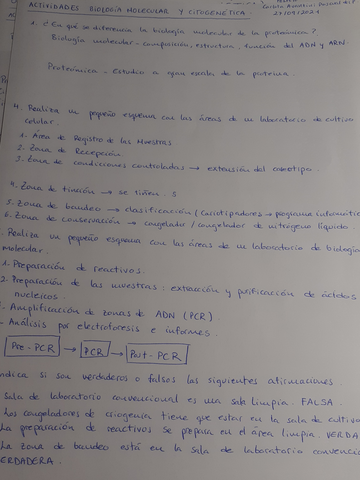 ACTIVIDADES BIOLOGÍA MOLECULAR Y CITOGENÉTICA
27/09/2021
1. ¿En qué se diferencia la biología molecular de la proteómica?
Biología molecular - composición, estructura, función del ADN y ARN.
Proteómica - Estudio a gran escala de la proteína.
4. Realiza un pequeño esquema con las áreas de un laboratorio de cultivo
celular.
1. Área de Registro de las Muestras
2. Zona de Recepción.
3. Zona de condiciones controladas → extensión del cariotipo.
4. Zona de tinción → se tiñen. s
5. Zona de bandeo → clasificación (cariotipadores → programa informático
6. Zona de conservación → congelador / congelador de nitrógeno líquido.
Realiza un pequeño esquema con las áreas de un laboratorio de biología
molecular.
1. Preparación de reactivos.
2. Preparación de las muestras: extracción y purificación de ácidos
nucleicos.
Amplificación de zonas de ADN (PCR).
- Análisis por electroforesis e informes.
Pre-PCR → PCR → Post-PCR
ndica si son verdaderos o falsos las siguientes afirmaciones.
sala de laboratorio convencional es una sala limpia. FALSA.
Los congeladores de criogenia tiene que estar en la sala de cultivo
La preparación de reactivos se prepara en el área limpia. VERDA
La zona de bandeo está en la sala de laboratorio convencio
ERDADERA.